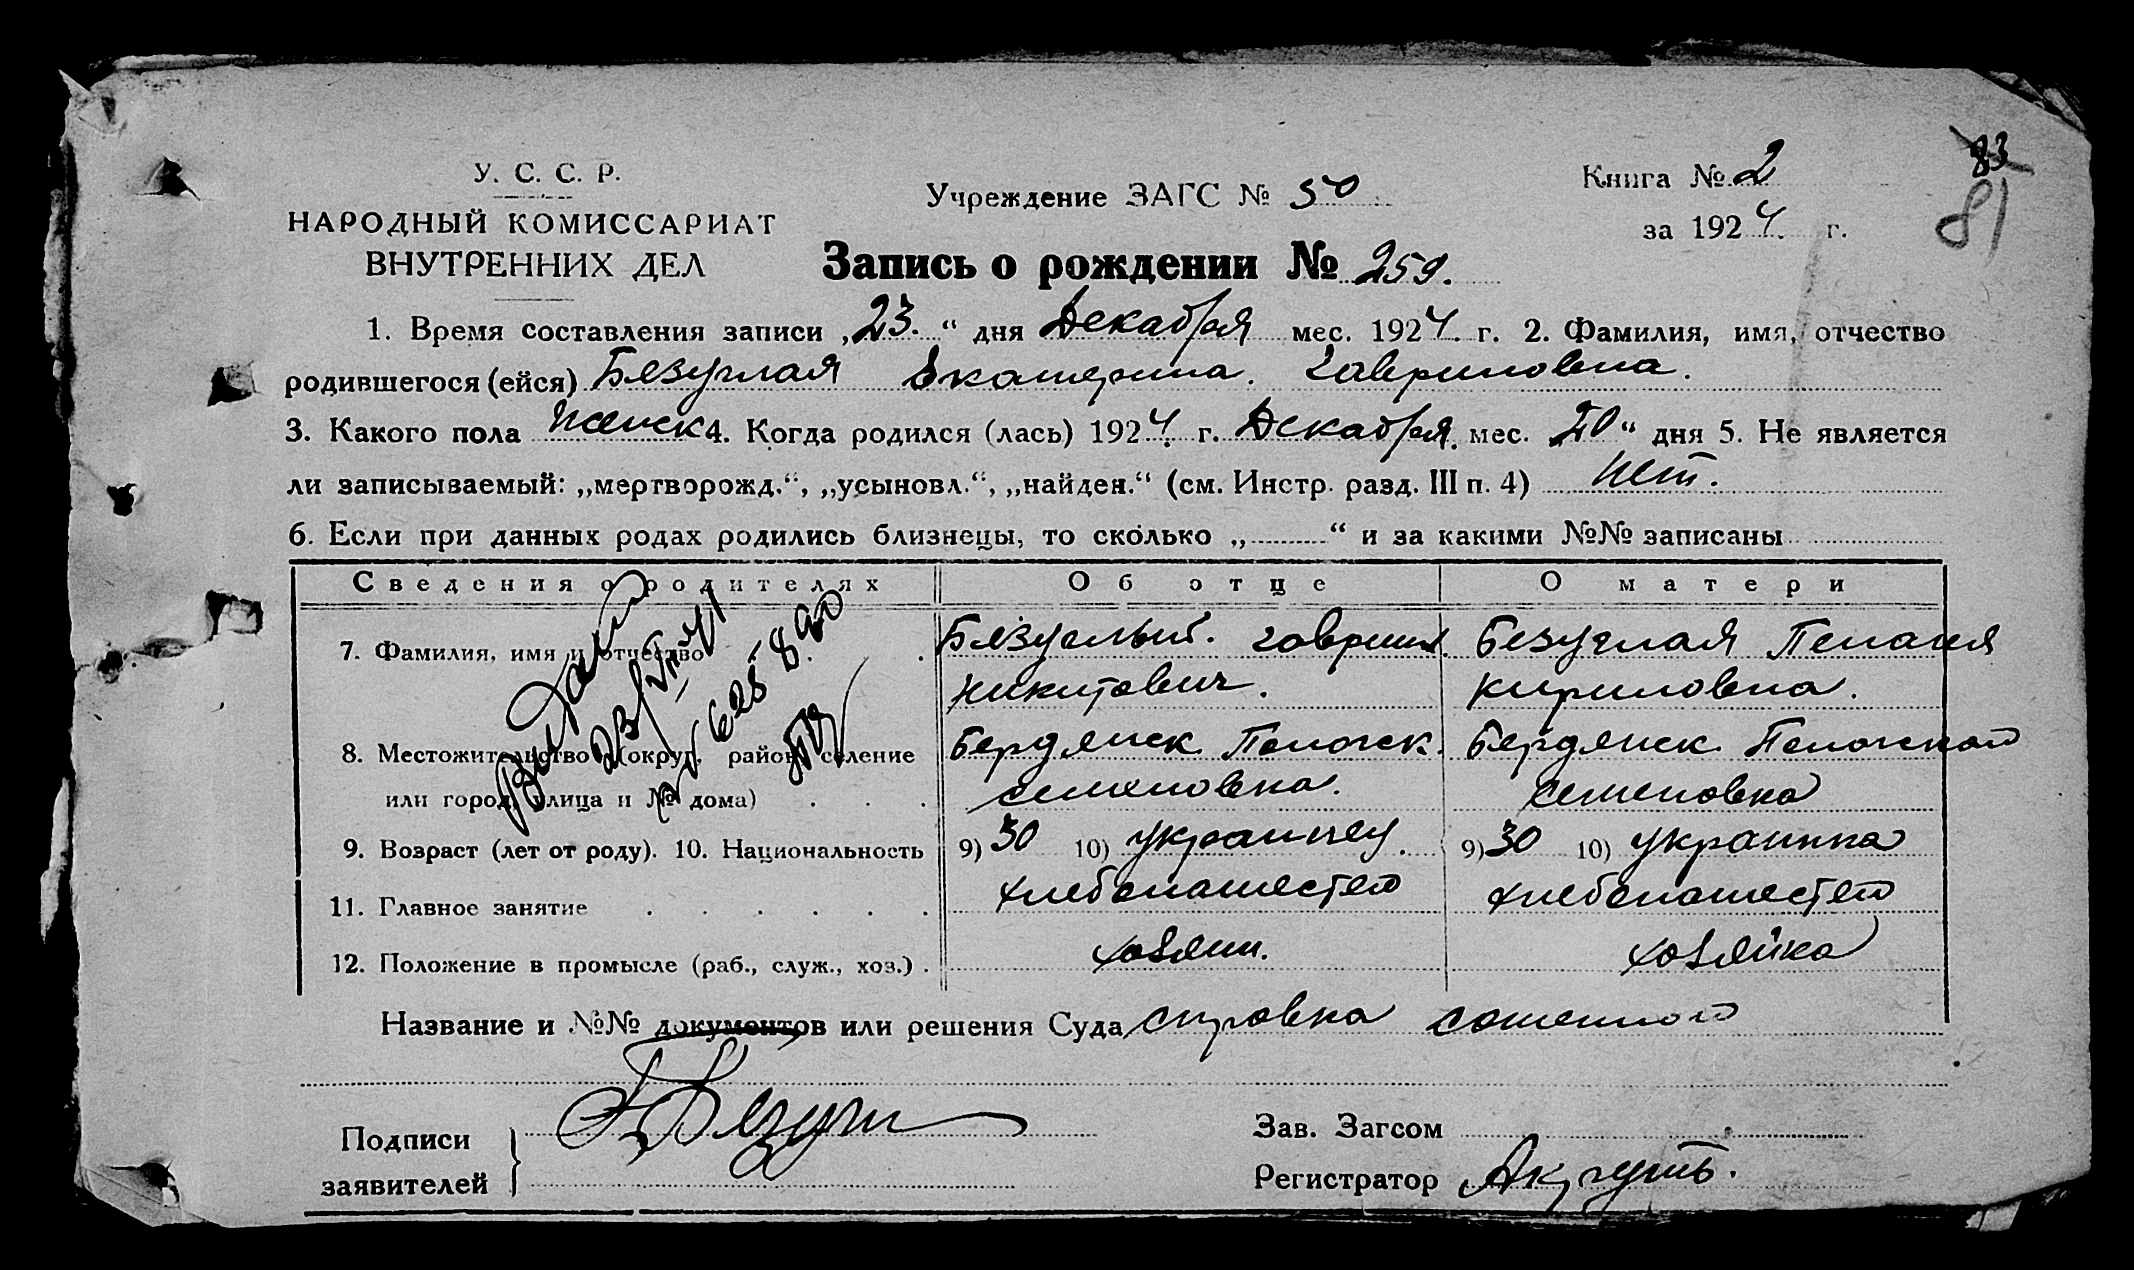 83
81
У. С. С. Р.
НАРОДНЫЙ КОМИССАРИАТ
ВНУТРЕННИХ ДЕЛ
Учреждение ЗАГС № 50
Книга № 2
за 1924 г.
Запись о рождении № 259.
1. Время составления записи „23.“ дня Декабря мес. 1924 г. 2. Фамилия, имя, отчество
родившегося (ейся) Безуглая Екатерина. Гавриловна.
3. Какого пола женск 4. Когда родился (лась) 1924 г. Декабря. мес. 20“ дня 5. Не является
ли записываемый: „мертворожд.“, „усыновл.“, „найден.“ (см. Инстр. разд. III п. 4) Нет.
6. Если при данных родах родились близнецы, то сколько „ “ и за какими №№ записаны
Сведения о родителях Об отце О матери
7. Фамилия, имя и отчество Безуглый. Гавриил. Безуглая Пелагея
Никитович. Кириловна.
8. Местожительство (округ, район, селение Бердянск. Пологск. Бердянск. Пологского
или город, улица и № дома) Семеновка. Семеновка
9. Возраст (лет от роду). 10. Национальность 9) 30 10) украинец. 9) 30 10) украинка
11. Главное занятие хлебопашество хлебопашество
12. Положение в промысле (раб., служ., хоз.) хозяин. хозяйка
Название и №№ документов или решения Суда справка
Подписи
заявителей
Зав. Загсом
Регистратор